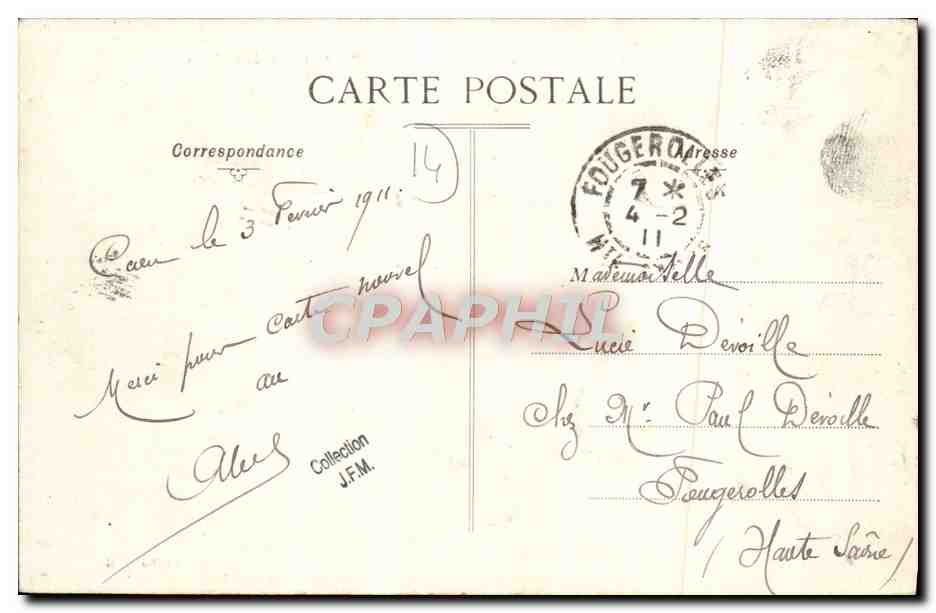 CARTE POSTALE
Correspondance
14
Adresse
FOUGEROLLES
7 *
4 - 2
11
Caen le 3 Fevrier 1911.
Merci pour carte nouvel
au
Collection
J.F.M.
Mademoiselle
Lucie Dévoille
chez Mr Paul Dévoille
Fougerolles
(Haute Saône)
CPAPHIL